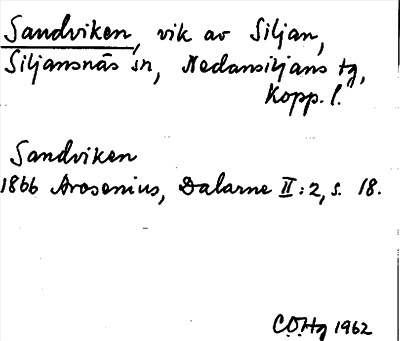 Sandviken, vik av Siljan,
Siljansnäs sn, Nedansiljans tg,
Kopp. l.
Sandviken
1866 Arosenius, Dalarne II:2, s. 18.
CÖHg 1962